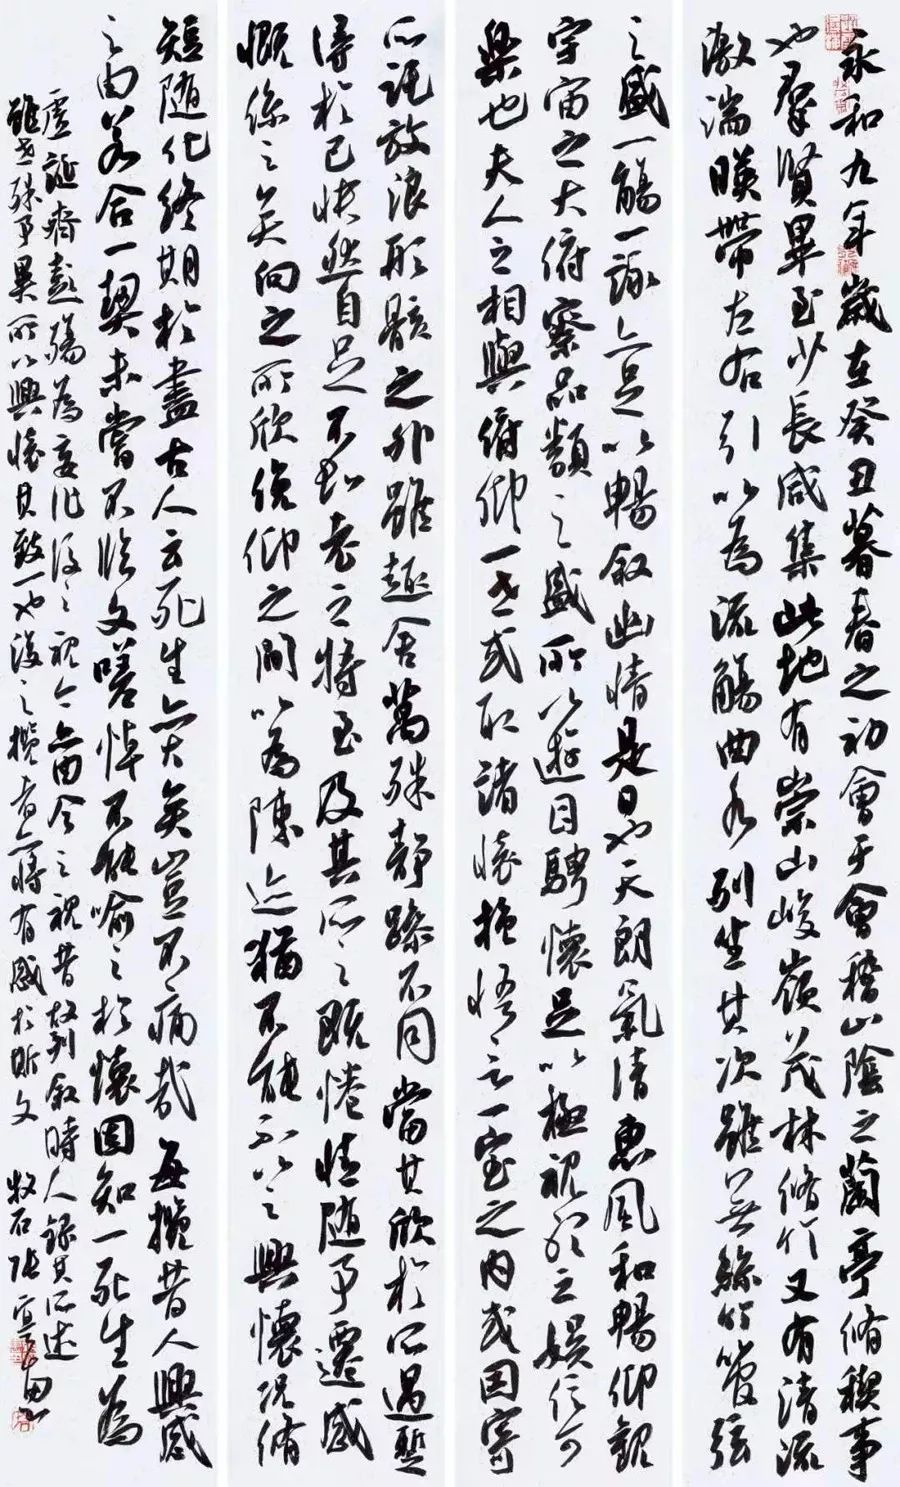 永和九年歲在癸丑暮春之初會于會稽山陰之蘭亭脩稧事
也羣賢畢至少長咸集此地有崇山峻嶺茂林脩竹又有清流
激湍暎帶左右引以為流觴曲水列坐其次雖無絲竹管弦
之盛一觴一詠亦足以暢叙幽情是日也天朗氣清惠風和暢仰觀
宇宙之大俯察品類之盛所以遊目騁懷足以極視聽之娛信可
樂也夫人之相與俯仰一世或取諸懷抱悟言一室之内或因寄
所託放浪形骸之外雖趣舍萬殊靜躁不同當其欣於所遇暫
得於己快然自足不知老之將至及其所之既惓情隨事遷感
慨係之矣向之所欣俛仰之間以為陳迹猶不能不以之興懷況脩
短隨化終期於盡古人云死生亦大矣豈不痛哉每攬昔人興感
之由若合一契未嘗不臨文嗟悼不能喻之於懷固知一死生為
虛誕齊彭殤為妄作後之視今亦由今之視昔故列叙時人錄其所述
雖世殊事異所以興懷其致一也後之攬者亦將有感於斯文 牧石張